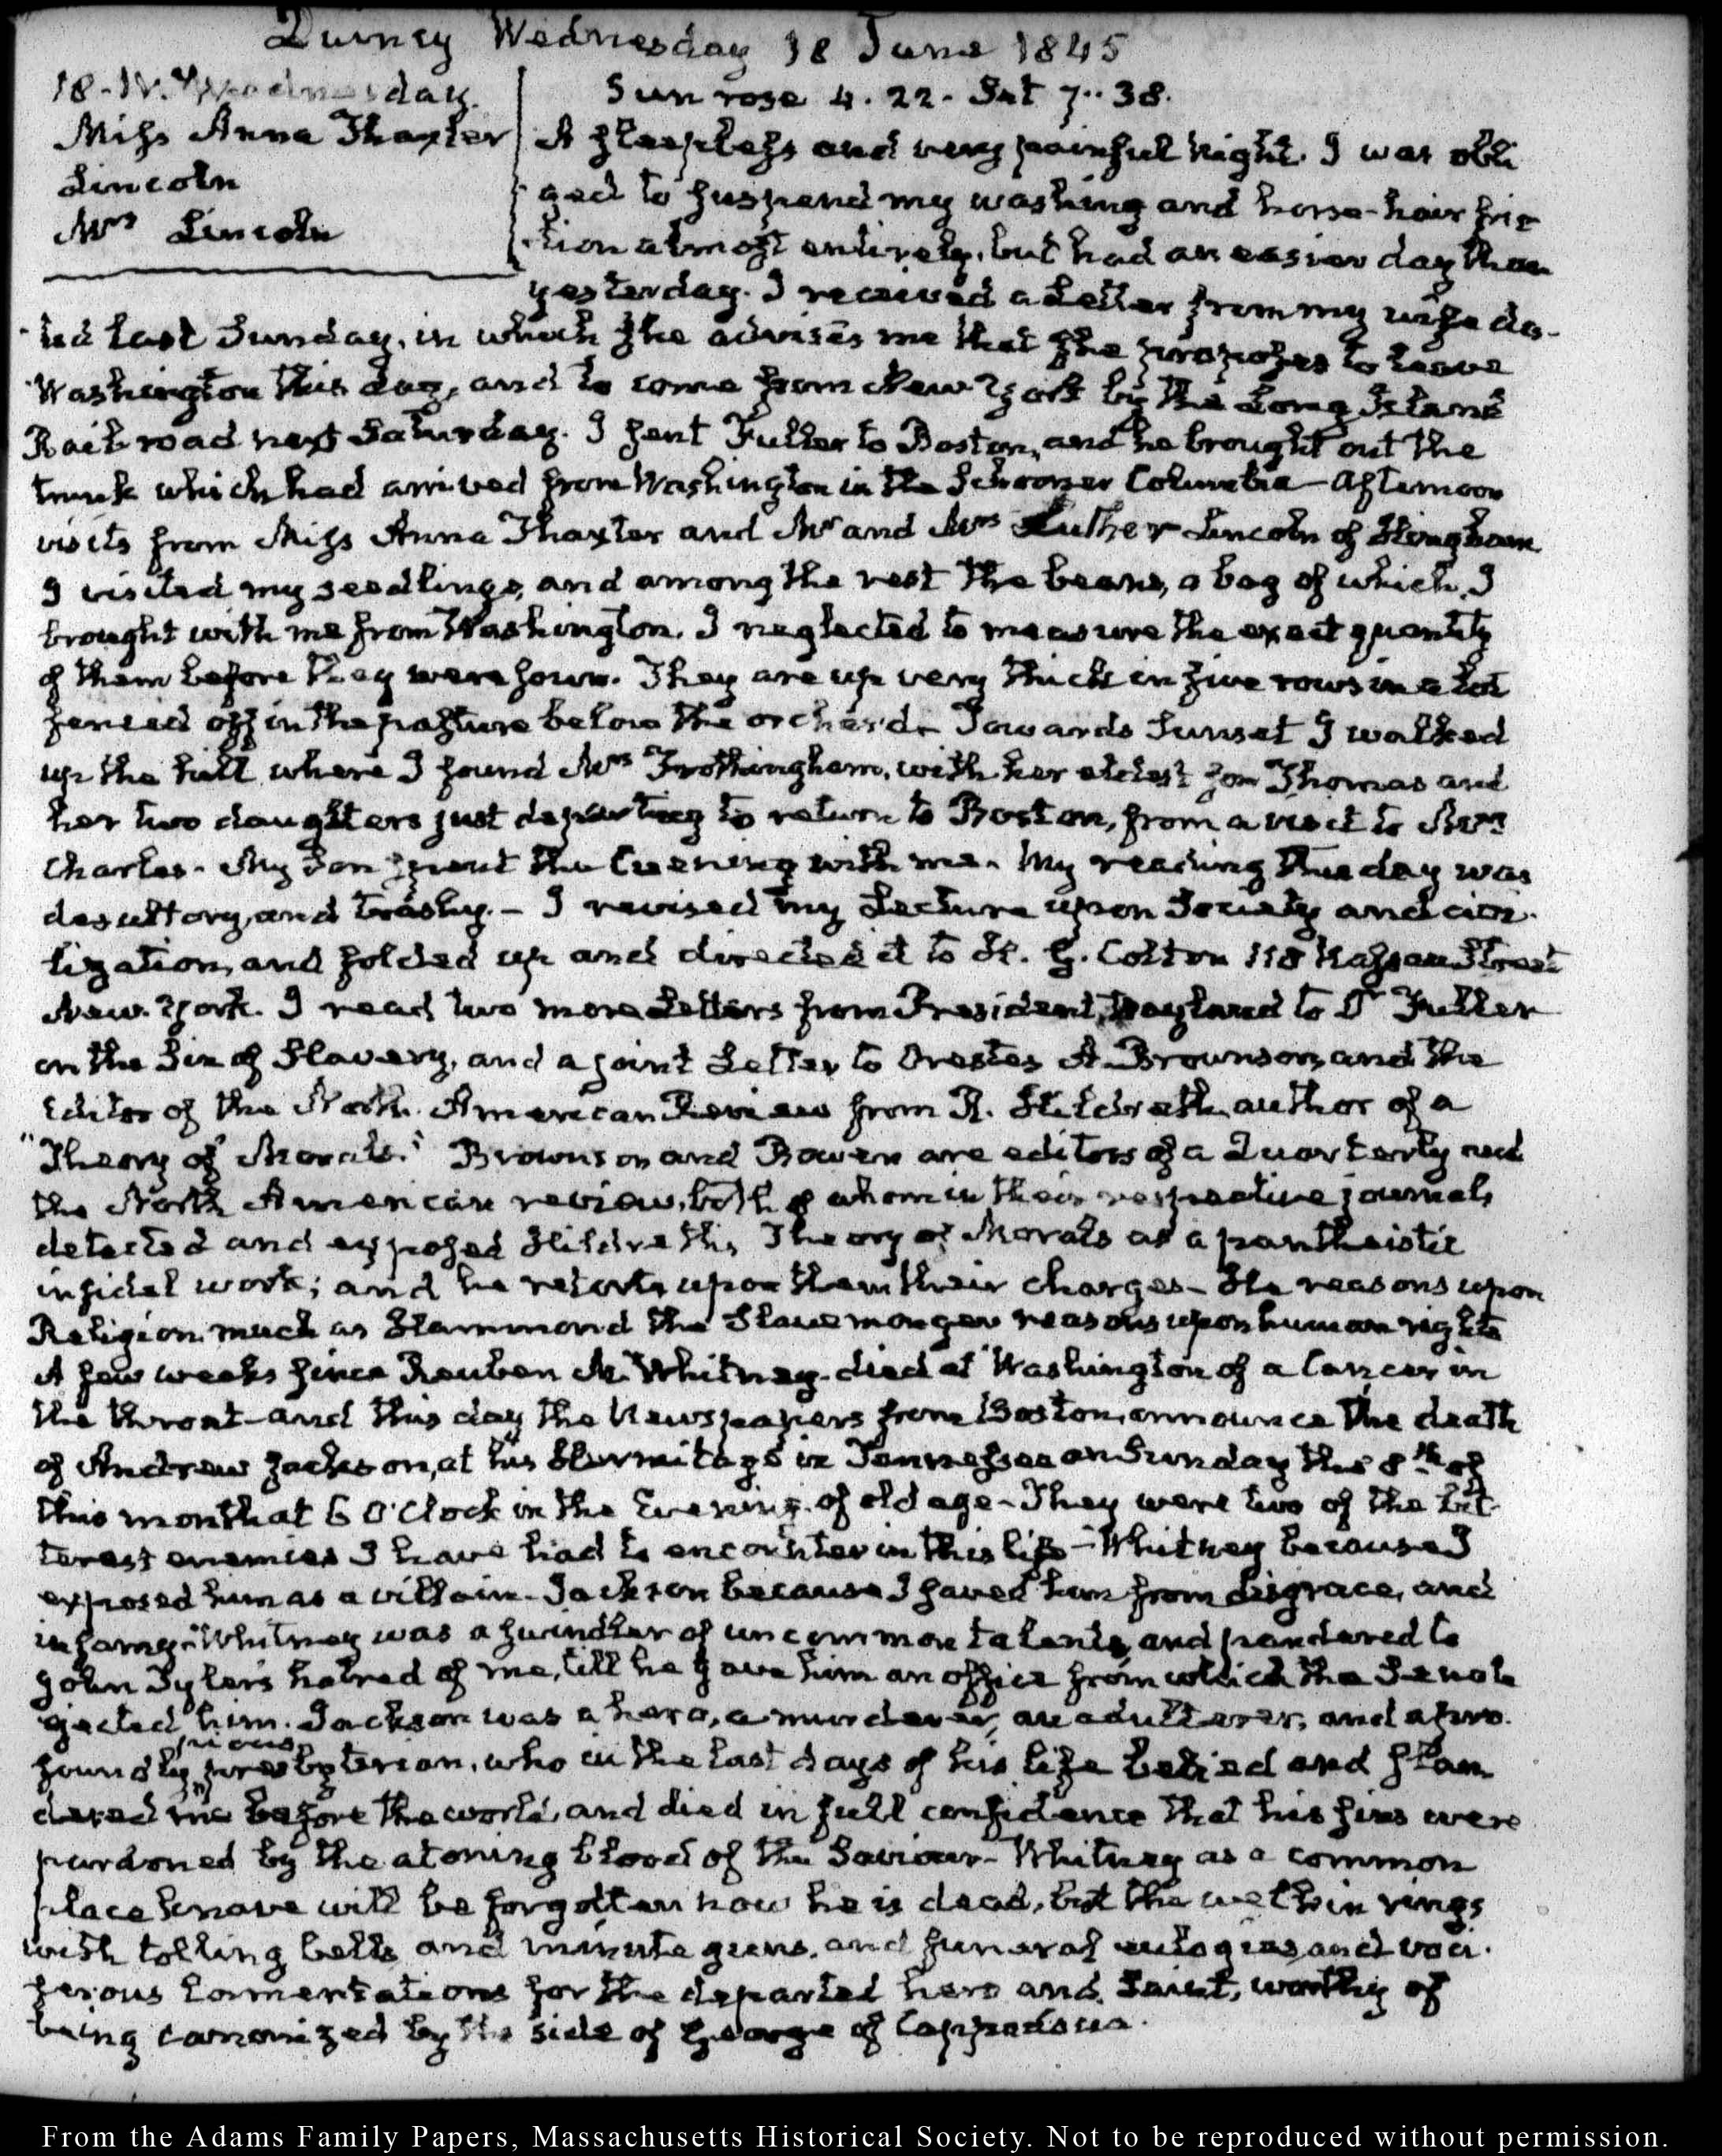 Quincy Wednesday 18 June 1845
18. IV. Wednesday.
Miss Anna Thaxter
Lincoln
Mrs Lincoln
Sun rose 4. 22. Set 7.. 38.
A sleepless and very painful night. I was obli
ged to suspend my washing and horse-hair fric
tion almost entirely, but had an easier day than
yesterday. I received a Letter from my wife da-
ted last Sunday, in which she advises me that she proposes to leave
Washington this day, and to come from New York by the Long Island
Rail road next Saturday. I sent Fuller to Boston, and he brought out the
trunk which had arrived from Washington in the Schooner Columbia - Afternoon
visits from Miss Anna Thaxter and Mr and Mrs Luther Lincoln of Hingham
I visited my seedlings, and among the rest the beans, a bag of which, I
brought with me from Washington. I neglected to measure the exact quantity
of them before they were sown. They are up very thick in five rows in a lot
fenced off in the pasture below the orchard. Towards Sunset I walked
up the hill where I found Mrs Frothingham, with her eldest son Thomas and
her two daughters just departing to return to Boston, from a visit to Mrs
Charles. My Son spent the Evening with me. My reading this day was
desultory, and trashy. - I revised my Lecture upon Society and civi-
lization, and folded up and directed it to H. G. Colton 118 Nassau Street
New-York. I read two more Letters from President Wayland to Dr Fuller
on the Sin of Slavery, and a joint Letter to Orestes A. Brownson, and the
Editor of the North American Review from R. Hildreth, author of a
"Theory of Morals." Brownson and Bowen are editors of a Quarterly and
the North American review, both of whom in their respective journals
detected and exposed Hildreth's Theory of Morals as a pantheistic
infidel work; and he retorts upon them their charges - He reasons upon
Religion much as Hammond the Slavemonger reasons upon human rights
A few weeks since Reuben M. Whitney died at Washington of a Cancer in
the throat - and this day the Newspapers from Boston, announce the death
of Andrew Jackson, at his Hermitage in Tennessee on Sunday the 8th of
this month at 6 O'Clock in the Evening, of old age - They were two of the bit-
terest enemies I have had to encounter in this life - Whitney because I
exposed him as a villain. Jackson because I saved him from disgrace, and
infamy. Whitney was a swindler of uncommon talents, and pandered to
John Tyler's hatred of me, till he gave him an office from which the Senate
ejected him. Jackson was a hero, a murderer, an adulterer, and a pro-
pious
foundly presbyterian, who in the last days of his life belied and slan
dered me before the world, and died in full confidence that his sins were
pardoned by the atoning blood of the Saviour - Whitney as a common
place knave will be forgotten now he is dead, but the welkin rings
with tolling bells and minute guns, and funeral eulogies and voci-
ferous lamentations for the departed hero and Saint, worthy of
being canonized by the side of George of Cappadocia.
From the Adams Family Papers, Massachusetts Historical Society. Not to be reproduced without permission.